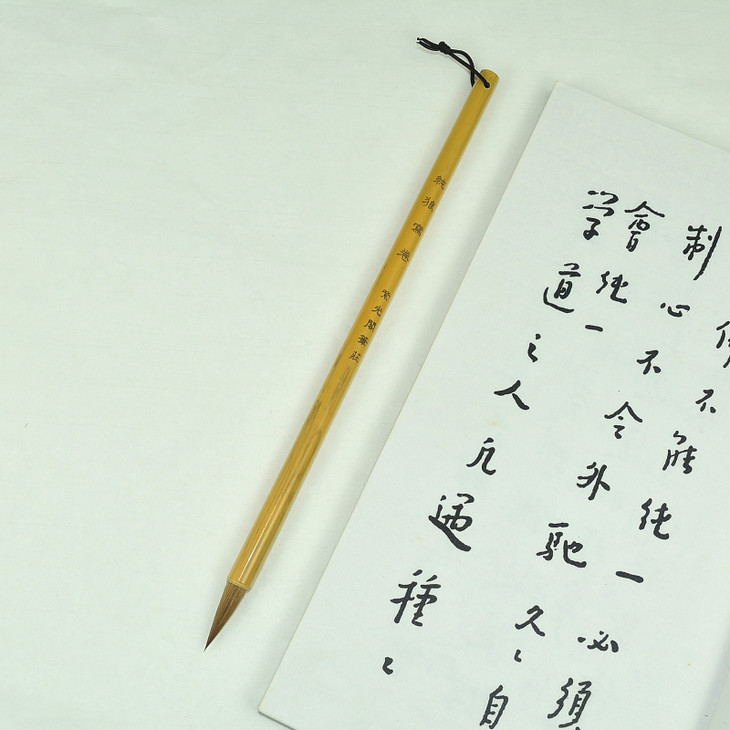 純狼寫卷 紫光閣筆莊
不能純一必須
制心不令外馳久〻自
會純一
學道之人凡遇種〻